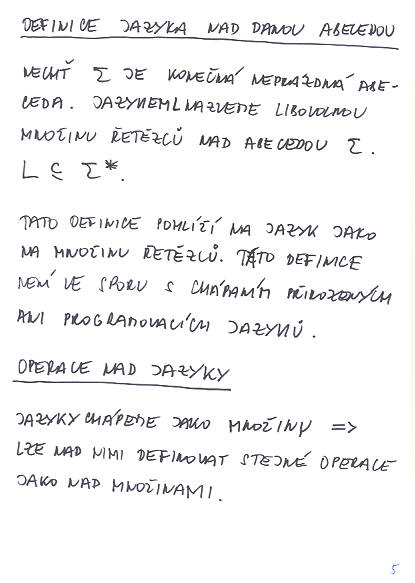 DEFINICE JAZYKA NAD DANOU ABECEDOU
NECHŤ Σ JE KONEČNÁ NEPRÁZDNÁ ABE-
CEDA. JAZYKEM L NAZVEME LIBOVOLNOU
MNOŽINU ŘETĚZCŮ NAD ABECEDOU Σ.
L ⊆ Σ*.
TATO DEFINICE POHLÍŽÍ NA JAZYK JAKO
NA MNOŽINU ŘETĚZCŮ. TATO DEFINICE
NENÍ VE SPORU S CHÁPANÍM PŘIROZENÝCH
ANI PROGRAMOVACÍCH JAZYKŮ.
OPERACE NAD JAZYKY
JAZYKY CHÁPEME JAKO MNOŽINY =>
LZE NAD NIMI DEFINOVAT STEJNÉ OPERACE
JAKO NAD MNOŽINAMI.
5